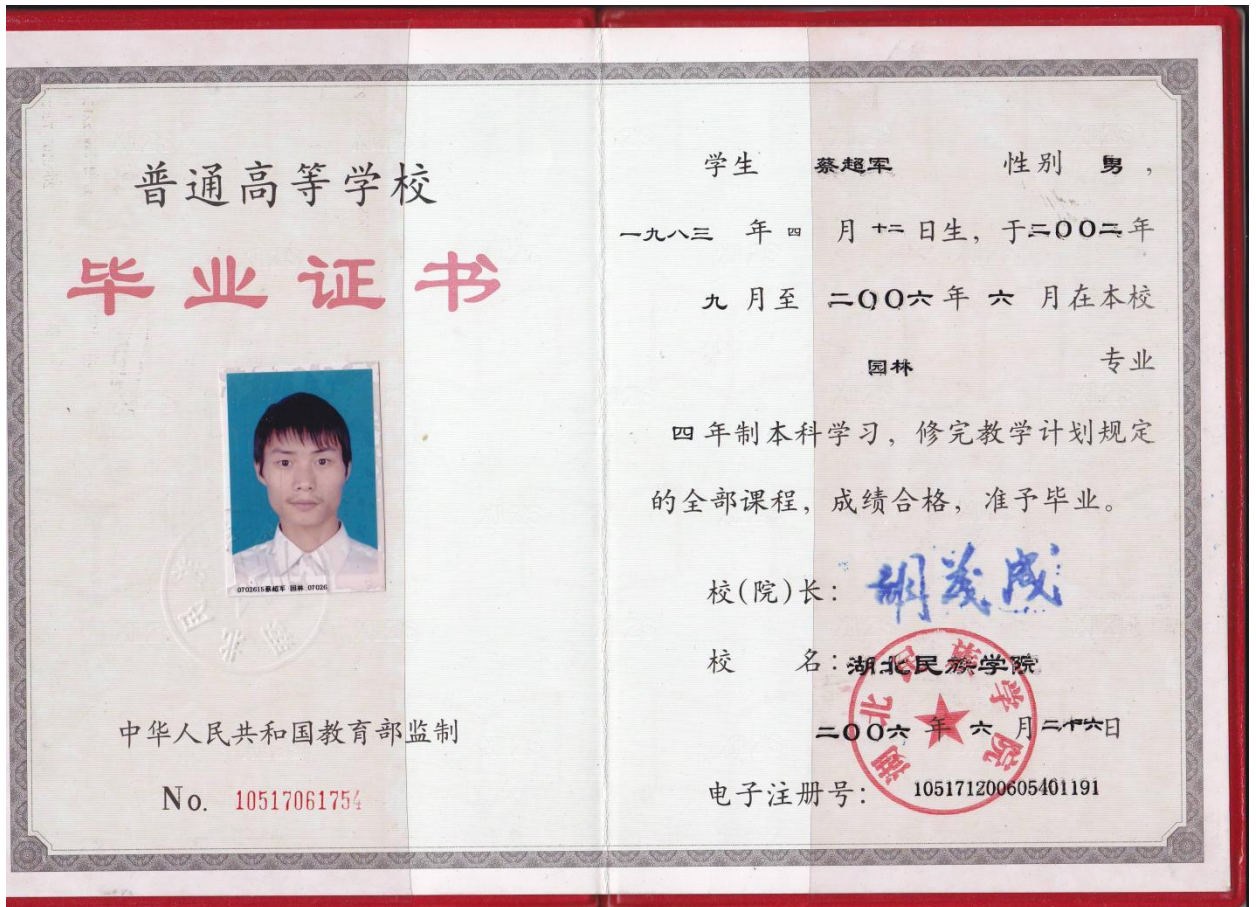 普通高等学校
毕业证书
0702615蔡超军 园林 07026
中华人民共和国教育部监制
No. 10517061754
学生 蔡超军 性别 男，
一九八三 年 四 月 十二 日生，于二00二年
九 月至 二00六 年 六 月在本校
园林 专业
四 年制本科学习，修完教学计划规定
的全部课程，成绩合格，准予毕业。
校(院)长： 胡茂成
校 名：湖北民族学院
湖北民族学院
二00六 年 六 月二十六日
电子注册号： 105171200605401191